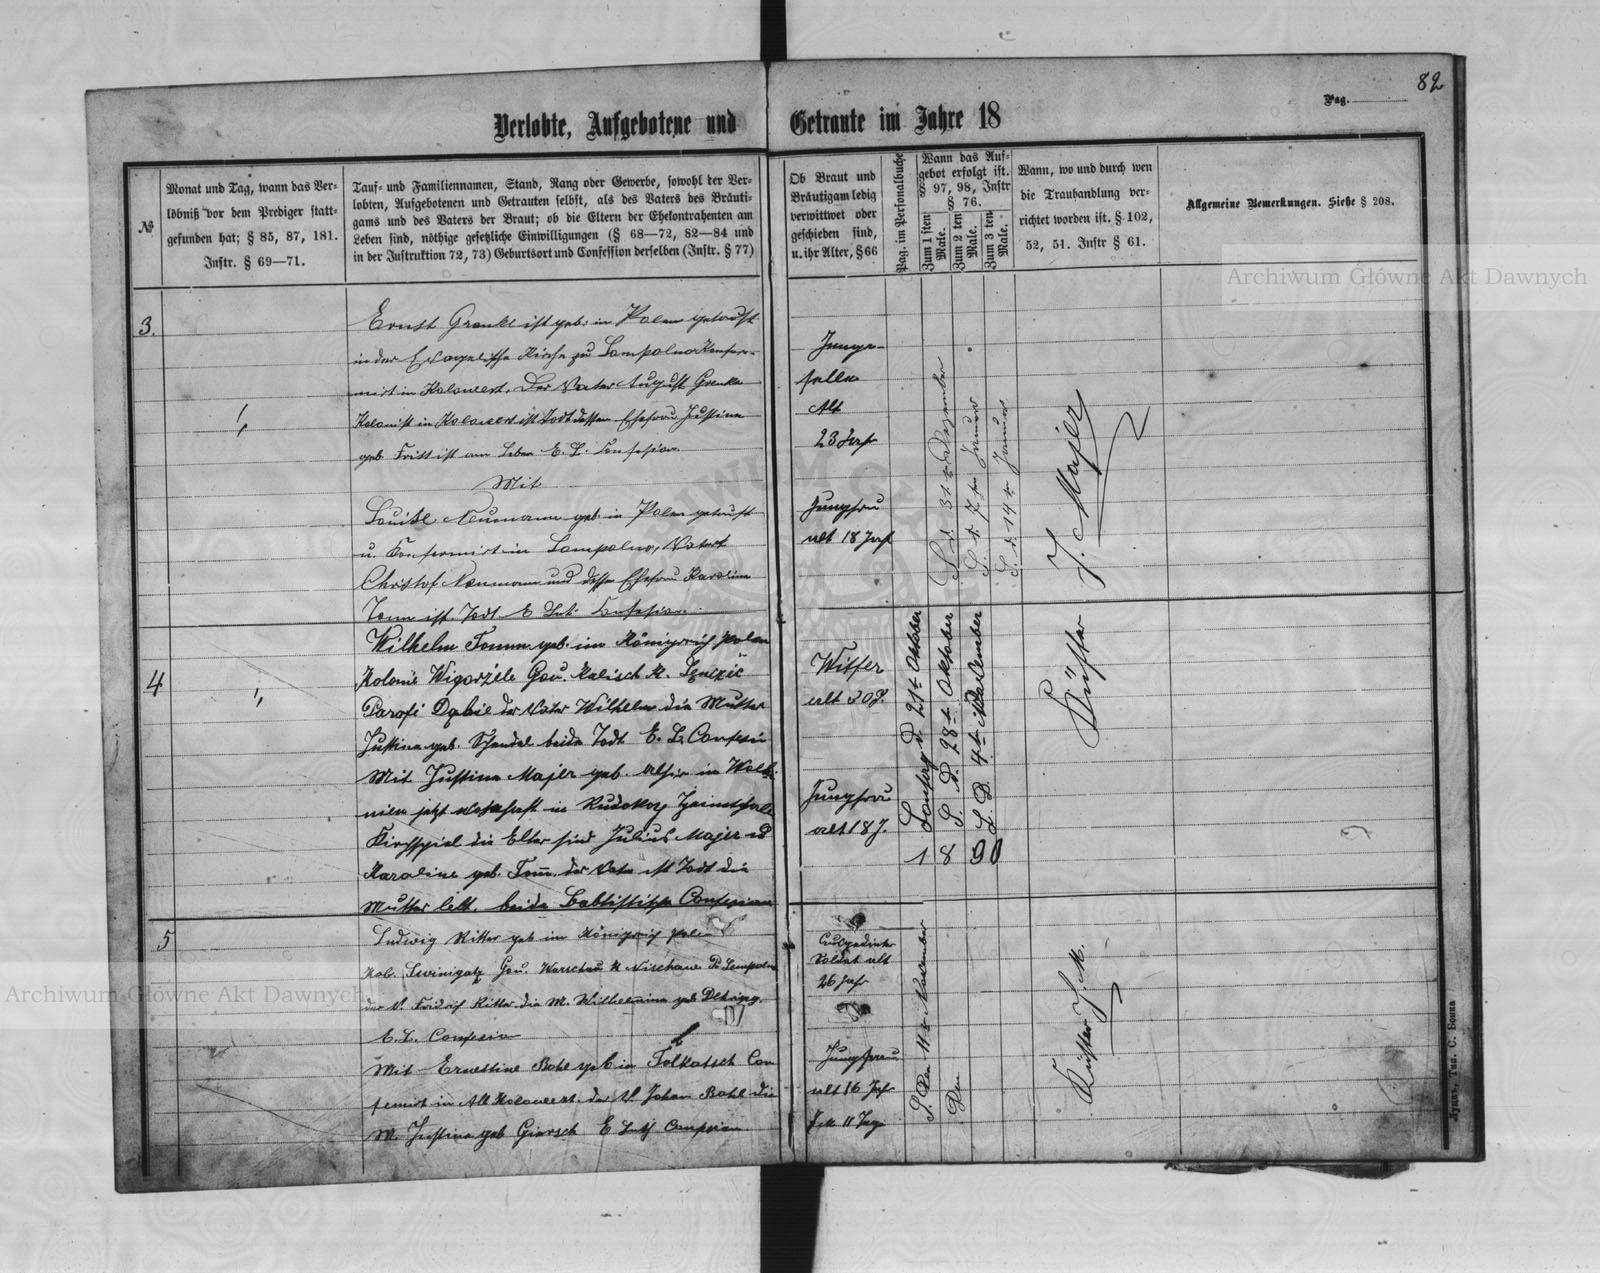 82
Pag.
Verlobte, Aufgebotene und Getraute im Jahre 18
№
Monat und Tag, wann das Ver-
löbniß vor dem Prediger statt-
gefunden hat; § 85, 87, 181.
Instr. § 69—71.
Tauf- und Familiennamen, Stand, Rang oder Gewerbe, sowohl der Ver-
lobten, Aufgebotenen und Getrauten selbst, als des Vaters des Bräuti-
gams und des Vaters der Braut; ob die Eltern der Ehekontrahenten am
Leben sind, nöthige gesetzliche Einwilligungen (§ 68—72, 82—84 und
in der Instruktion 72, 73) Geburtsort und Confession derselben (Instr. § 77)
Ob Braut und
Bräutigam ledig
verwittwet oder
geschieden sind,
u. ihr Alter, § 66
Pag. im Personalbuche
Wann das Auf-
gebot erfolgt ist.
§ 97, 98, Instr
§ 76.
Zum 1 sten
Male.
Zum 2 ten
Male.
Zum 3 ten
Male.
Wann, wo und durch wen
die Trauhandlung ver-
richtet worden ist. § 102,
52, 51. Instr § 61.
Allgemeine Bemerkungen. Siehe § 208.
Archiwum Główne Akt Dawnych
3.
Ernst Grenke ist geb. in Polen getauft
in der Kirche zu Sompolno
mirt in Kolowert. Der Vater August Grenke
Kolonist in Kolowert ist Todt dessen Ehefrau Justine
geb. ist am Leben E. L. Confesion.
Mit
Louise Neumann geb. in Polen getauft
u. Konfermirt in Sompolno, Vater
Christof Neumann und dessen Ehefrau Karoline
ist Todt E Lut. Confesion.
Junge-
selle
Alt
23 Jahr
Jungfrau
alt 18 Jahr
S. d. 31 Dezember
S. d. 7 Januar
S. d. 14 Januar
J. Majer
4
Wilhelm Tomm geb. im Königreich Polen
Kolonie Gou. Kalisch K.
Parafi Dąbie der Vater Wilhelm die Mutter
Justine geb. Schendel beide Todt E. L. Confesion
Mit Justine Majer geb. in Wolhi-
nien jetzt wohnhaft in
Kirchspiel die Elter sind Julius Majer u
Karoline geb. Tomm der Vater ist Todt die
Mutter lebt. beide Babtistische Confesion
Witfer
alt 30 J.
Jungfrau
alt 18 J.
Sontag d. 21 Oktober
S. D. 28 Oktober
S. D. 4 November
1 8 90
Küster
5
Ludwig Ritter geb im Königreich Polen
Kol. Gou. Warschau K Nischawe P. Sompolno
der V. Fridrich Ritter die M. Wilhelmine geb
E. L. Confesion
Mit Ernestine Bohl geb in Con
femirt in Alt Kolowert. der V Johan Bohl die
M. Justine geb Giersch E Luth Confesion
Soldat alt
26 Jahr
Jungfrau
alt 16 Jahr
11 Tage
S. Den 11 November
Den
Küster J. M.
Archiwum Główne Akt Dawnych
Луцкъ, Тип. С. Бонка